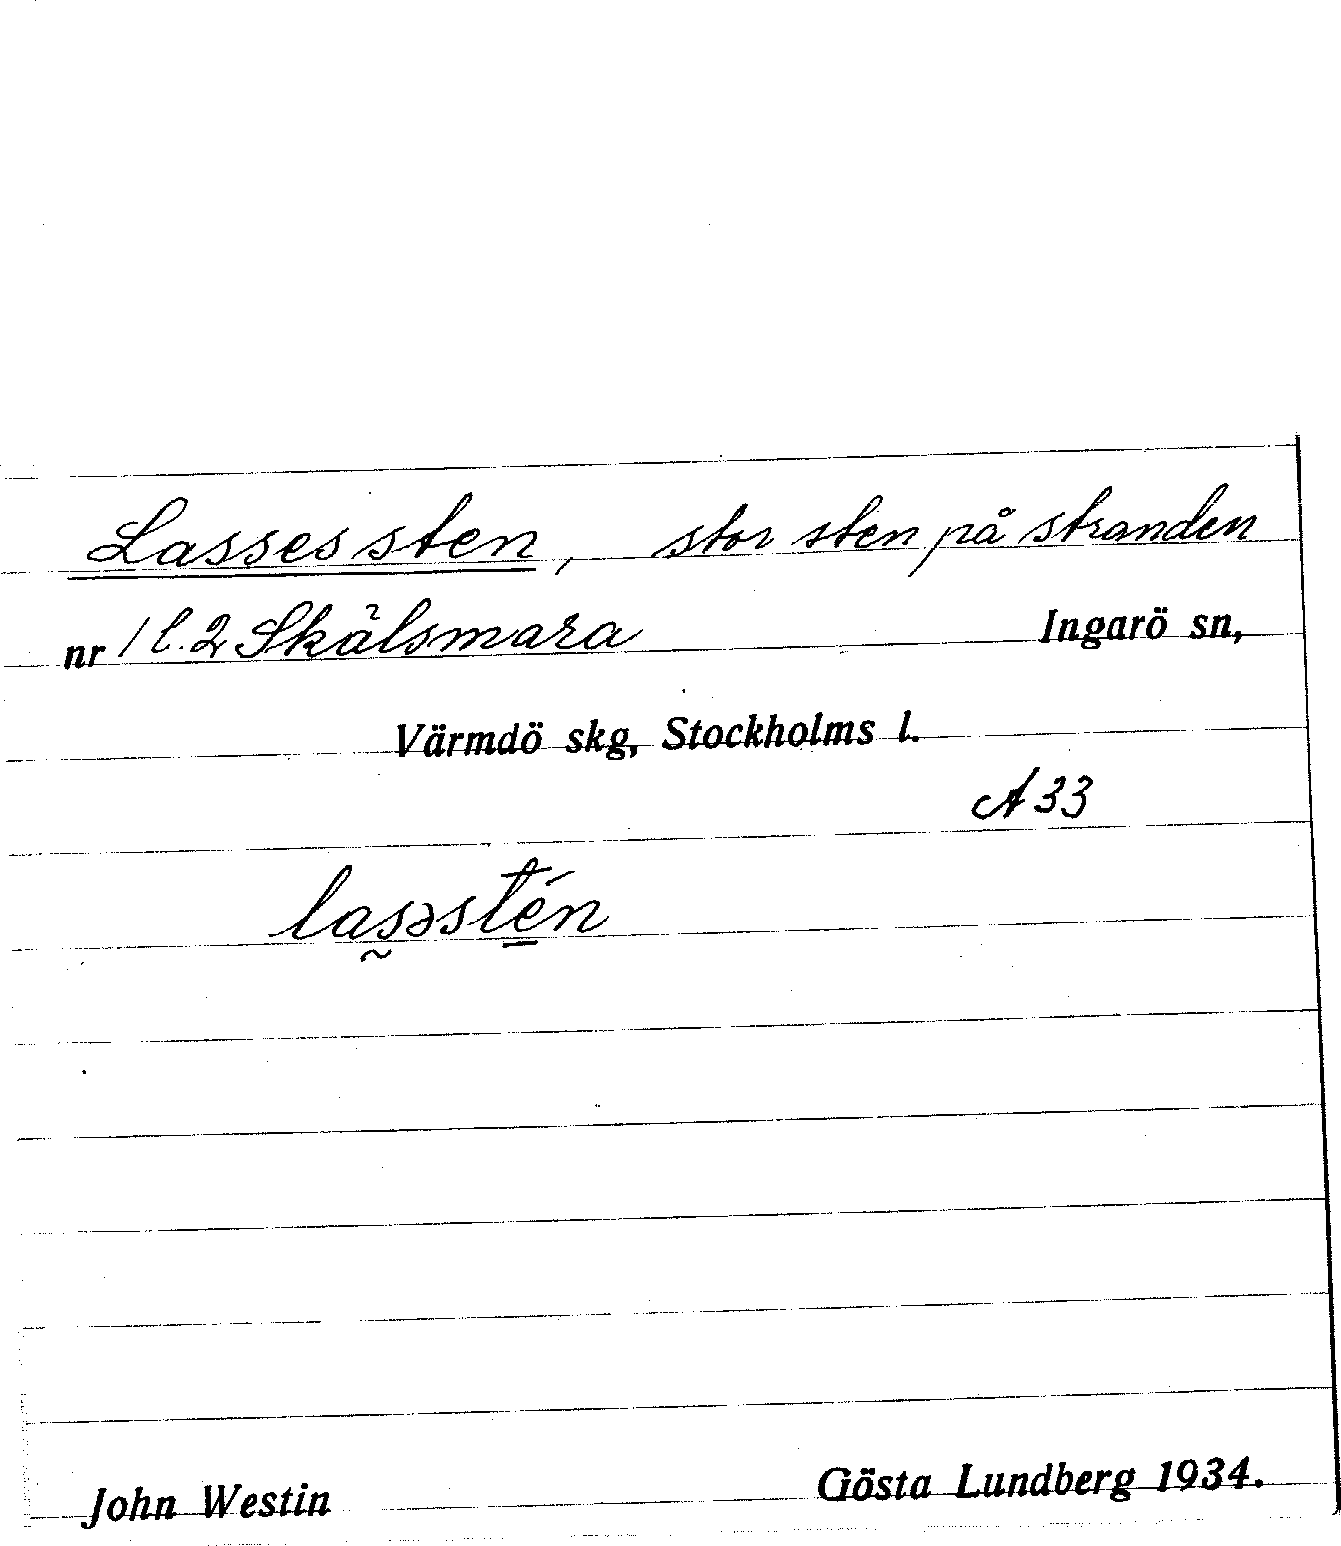 Lasses sten, stor sten på stranden
nr 1 l. 2 Skälsmara Ingarö sn,
Värmdö skg, Stockholms l.
A 33
las̰əstén
John Westin Gösta Lundberg 1934.